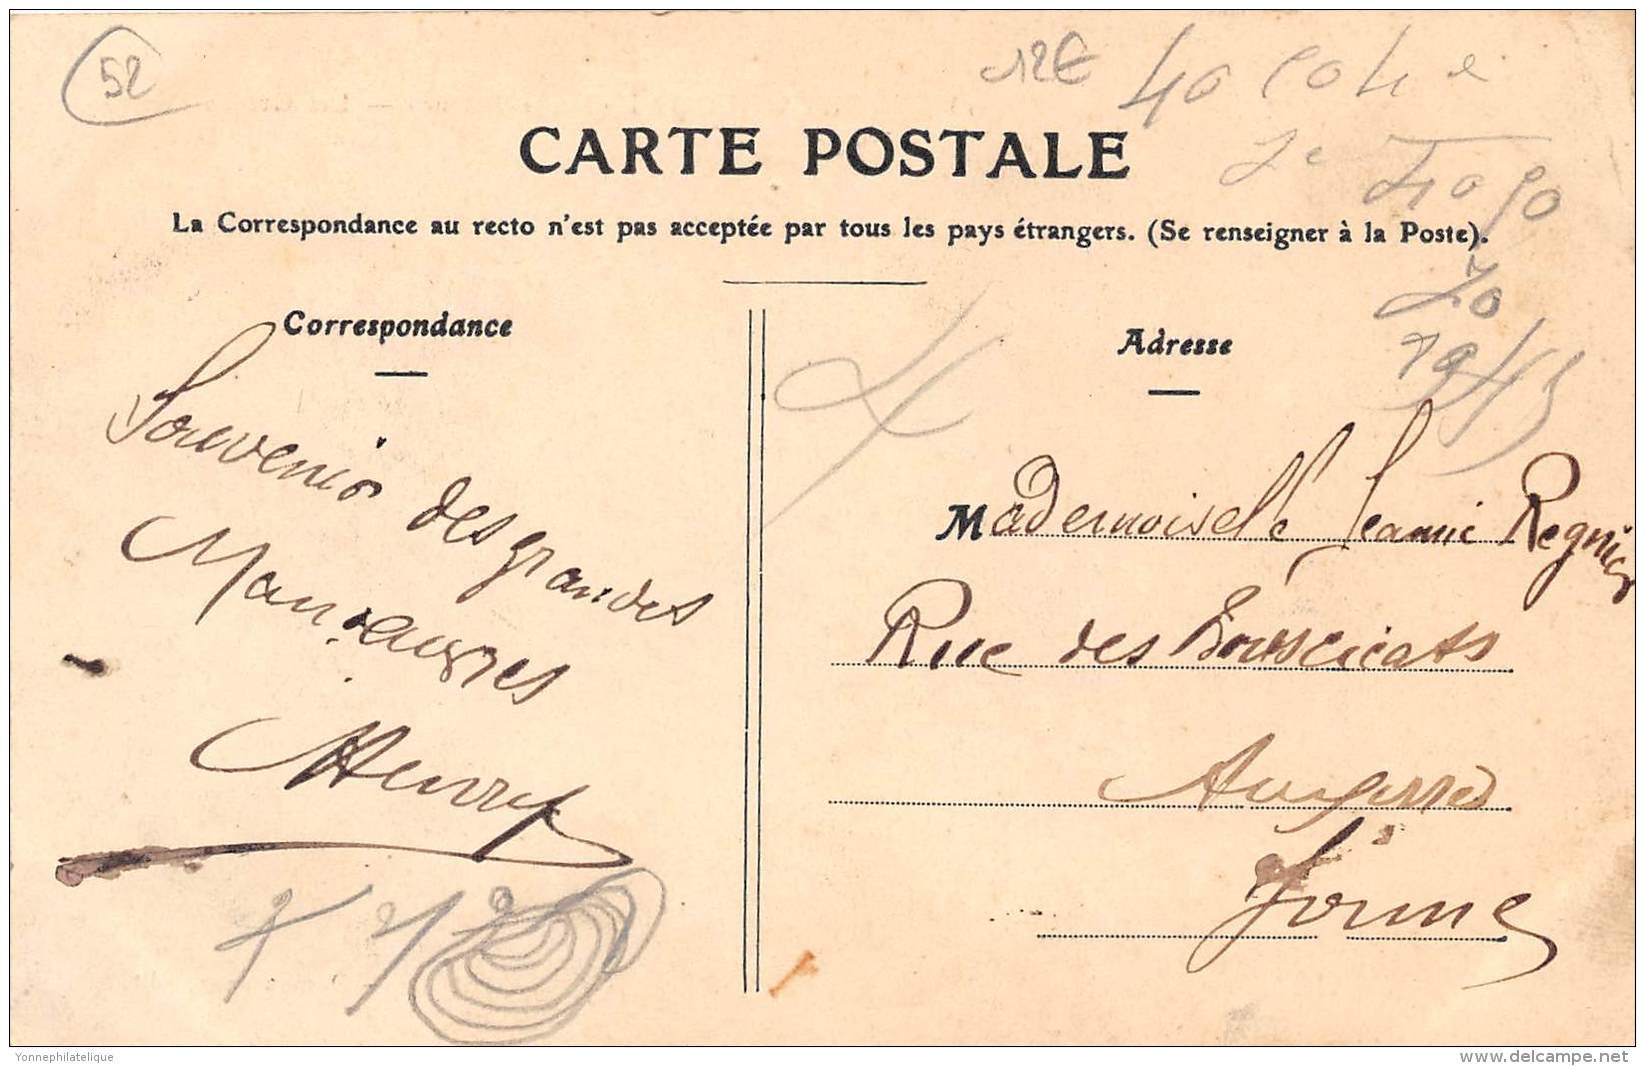 52
12€
40
CARTE POSTALE
La Correspondance au recto n'est pas acceptée par tous les pays étrangers. (Se renseigner à la Poste).
Correspondance
Souvenir des grandes
Manœuvres
Henry
Adresse
Mademoiselle Jeanne Regnier
Rue des Boussicats
Auxerre
Yonne
Yonnephilatelique
www.delcampe.net